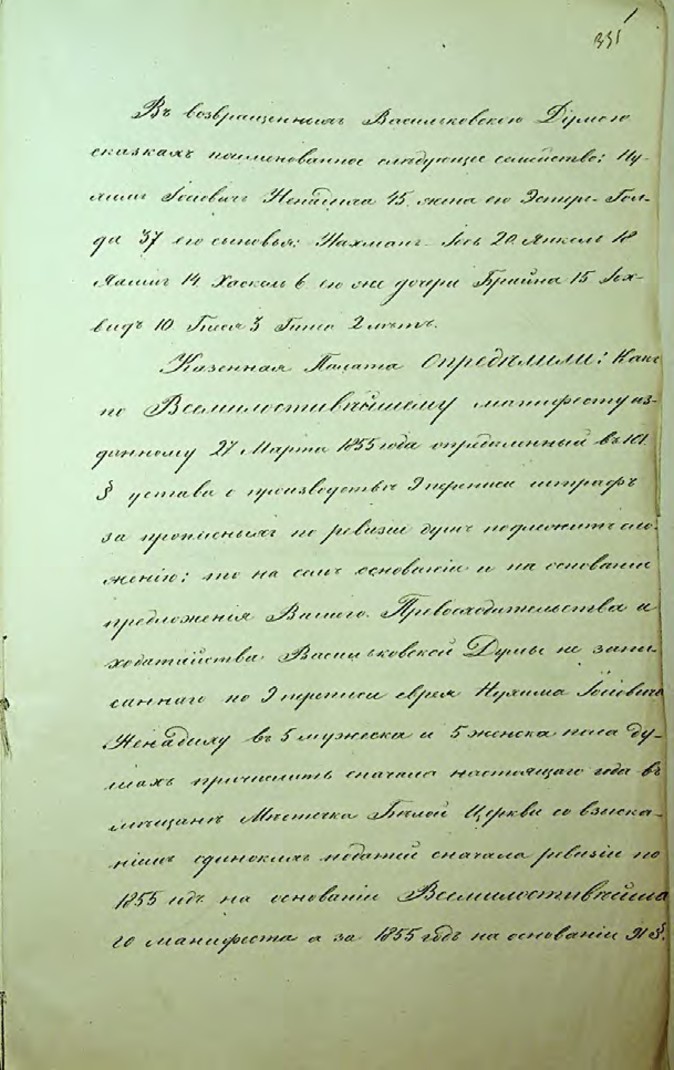 331
Въ возвращенныхъ Васильковскою Думою
сказкахъ поименованное слѣдующее семейство: Ну-
химъ Іосіовичъ Ненадиха 45. жена его Эстеръ-Гол-
да 37 его сыновья: Нахманъ-Іось 20. Янкель 18
14. Хаскель 6. его же дочери Брайна 15
10. 3 2 лѣтъ.
Казенная Палата Опредѣлили: Какъ
по Всемилостивѣйшему манифесту из-
данному 27 Марта 1855 года опредѣленный въ 101.
§ устава о производствѣ 9 переписи штрафъ
за прописныхъ по ревизіи душъ подлежитъ сло-
женію; то на семъ основаніи и на основаніи
предложенія Вашего Превосходительства и
ходатайства Васильковской Думы не запи-
саннаго по 9 переписи еврея Нухима Іосіовича
Ненадиху въ 5 мужеска и 5 женска пола ду-
шахъ причислить сначала настоящаго года въ
мѣщане Мѣстечка Бѣлой Церкви со взыска-
ніемъ одинокихъ податей сначала ревизіи по
1855 годъ на основаніи Всемилостивѣйша
го манифеста а за 1855 годъ на основаніи 91 §.